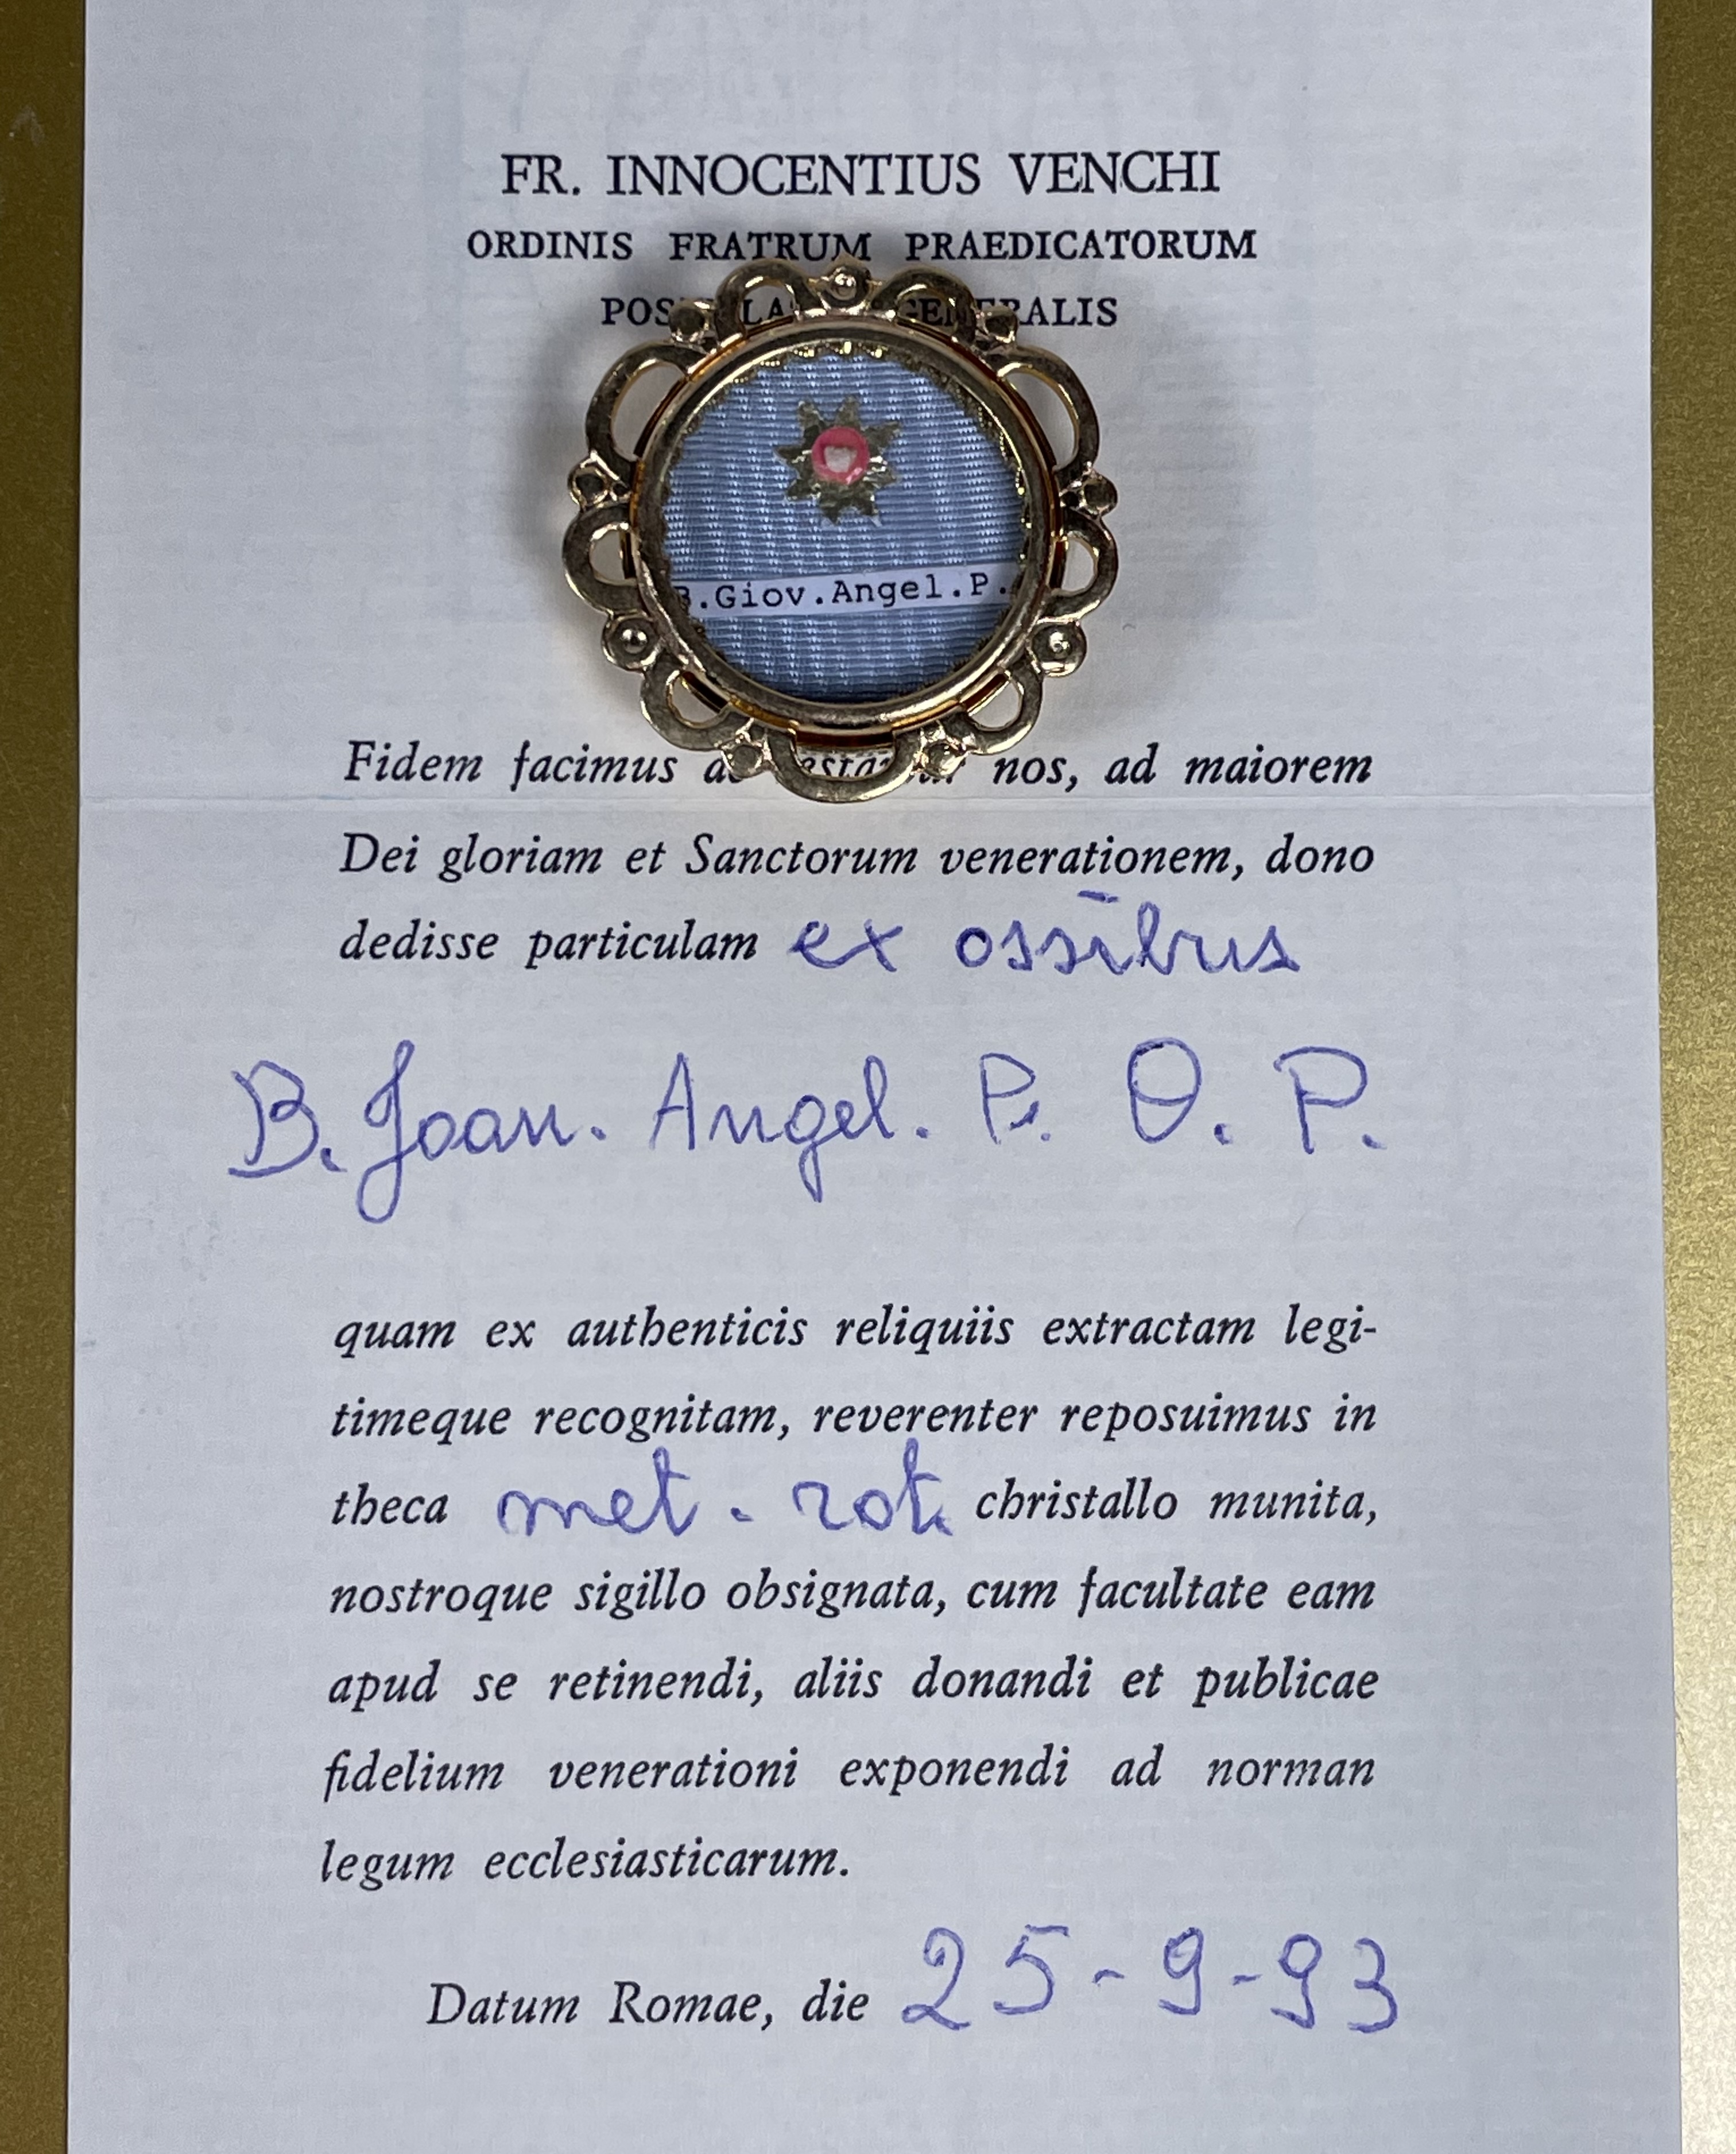 FR. INNOCENTIUS VENCHI
ORDINIS FRATRUM PRAEDICATORUM
B.Giov.Angel.P.
Fidem facimus nos, ad maiorem
Dei gloriam et Sanctorum venerationem, dono
dedisse particulam ex ossibus
B. Joan. Angel. P. O. P.
quam ex authenticis reliquiis extractam legi-
timeque recognitam, reverenter reposuimus in
theca met. rot. christallo munita,
nostroque sigillo obsignata, cum facultate eam
apud se retinendi, aliis donandi et publicae
fidelium venerationi exponendi ad norman
legum ecclesiasticarum.
Datum Romae, die 25-9-93